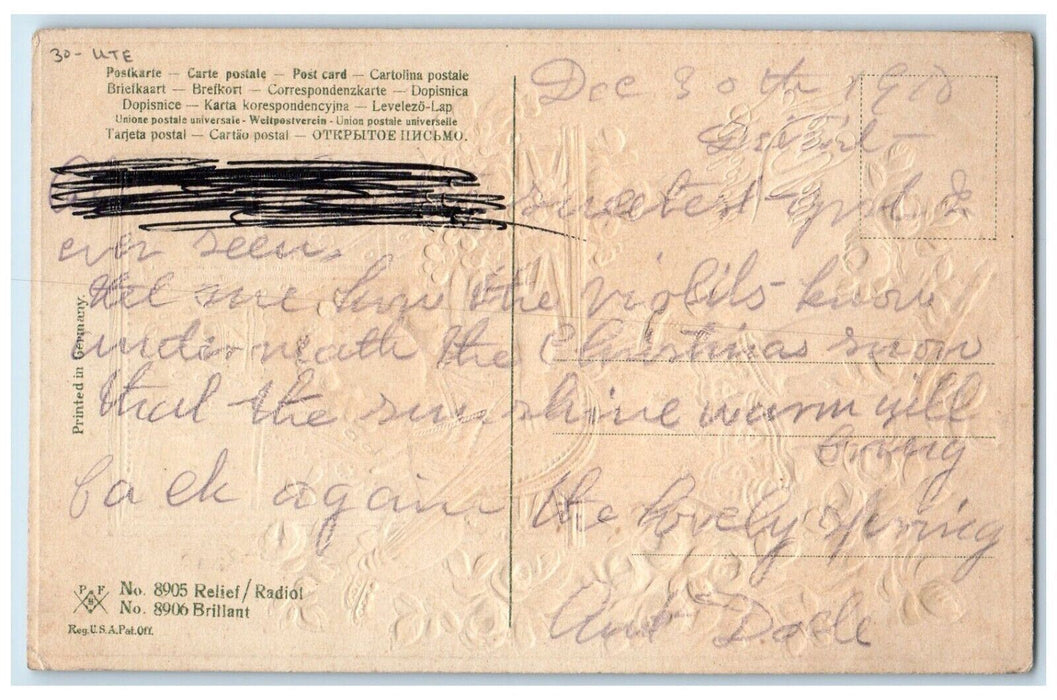 30- UTE
Postkarte — Carte postale — Post card — Cartolina postale
Briefkaart — Brefkort — Correspondenzkarte — Dopisnica
Dopisnice — Karta korespondencyjna — Levelező-Lap
Unione postale universale - Weltpostverein - Union postale universelle
Tarjeta postal — Cartão postal — ОТКРЫТОЕ ПИСЬМО.
Dec 30th 1910
sweetest girl I
ever seen.
tel me how the violits know
underneath the Christmas snow
that the sun shine warm will
bring
back again the lovely spring
Aut
Printed in Germany.
P F B
No. 8905 Relief/Radiol
No. 8906 Brillant
Reg.U.S.A.Pat.Off.